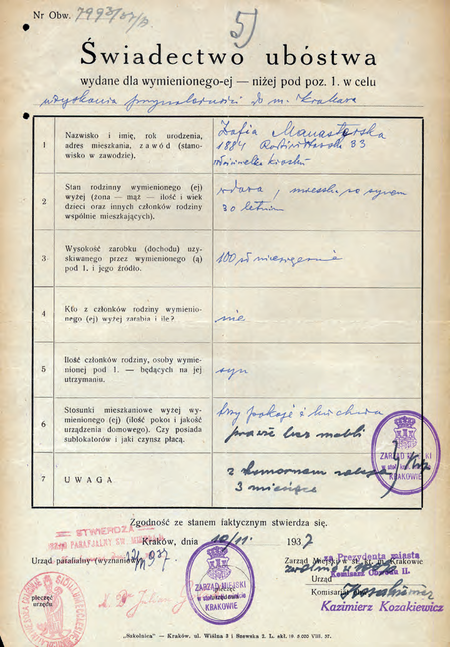 Nr Obw. 7993/37/
5)
Świadectwo ubóstwa
wydane dla wymienionego-ej — niżej pod poz. 1. w celu
uzyskania przynależności do m. Krakowa
1
Nazwisko i imię, rok urodzenia,
adres mieszkania, zawód (stano-
wisko w zawodzie).
Zofia
1884 33
właścicielka kiosku
2
Stan rodzinny wymienionego (ej)
wyżej (żona — mąż — ilość i wiek
dzieci oraz innych członków rodziny
wspólnie mieszkających).
wdowa, mieszka ze synem
30 letnim
3
Wysokość zarobku (dochodu) uzy-
skiwanego przez wymienionego (ą)
pod 1. i jego źródło.
100 zł miesięcznie
4
Kto z członków rodziny wymienio-
nego (ej) wyżej zarabia i ile?
nie
5
Ilość członków rodziny, osoby wymie-
nionej pod 1. — będących na jej
utrzymaniu.
syn
6
Stosunki mieszkaniowe wyżej wy-
mienionego (ej) (ilość pokoi i jakość
urządzenia domowego). Czy posiada
sublokatorów i jaki czynsz płaca.
trzy pokoje i kuchnia
prawie bez mebli
ZARZĄD MIEJSKI
KRAKOWIE
7
UWAGA
z komornem zalega
3 miesiące
Zgodność ze stanem faktycznym stwierdza się.
STWIERDZA
Kraków, dnia 10/11. 1937
URZĄD PARAFIALNY ŚW. MIKOŁAJA
Urząd parafialny (wyznaniowy)
Zarząd Miejski w stoł. król. m. Krakowie
za Prezydenta miasta
Urząd
Komisarz Obwodu II.
pieczęć
urzędu
pieczęć
ZARZĄD MIEJSKI
KRAKOWIE
Kozakiewicz
Kazimierz Kozakiewicz
„Sekolnica" — Kraków, ul. Wiślna 3 i Szewska 2. L. skł. 16 5.000 VIII. 37.